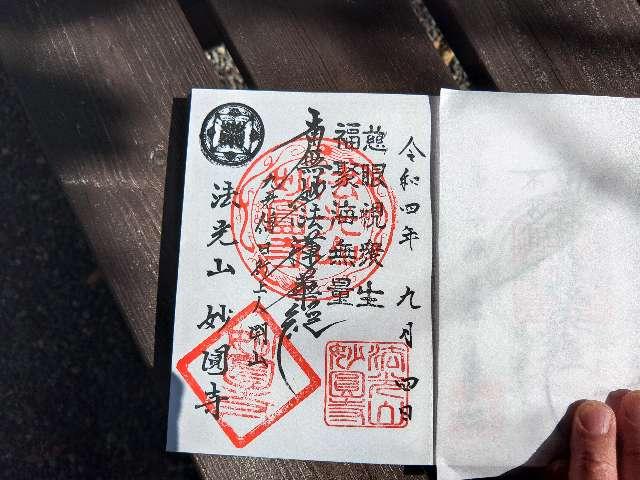 令和四年 九月四日
慈眼視衆生
福聚海無量
南無妙法蓮華経
九老僧日像上人開山
法光山 妙圓寺
法光山
妙圓寺